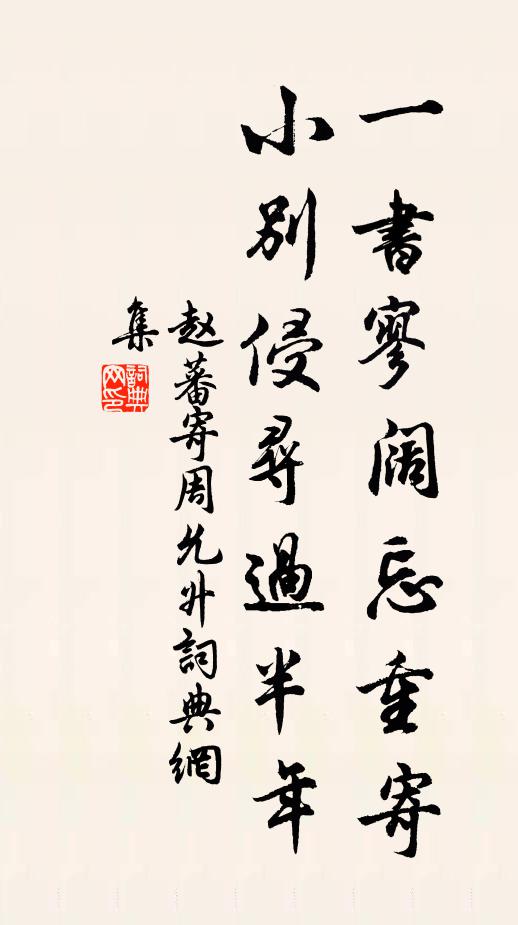 一書寥阔忘重寄
小别侵尋過半年
赵蕃寄周允升詞典網
集
詞典
网印